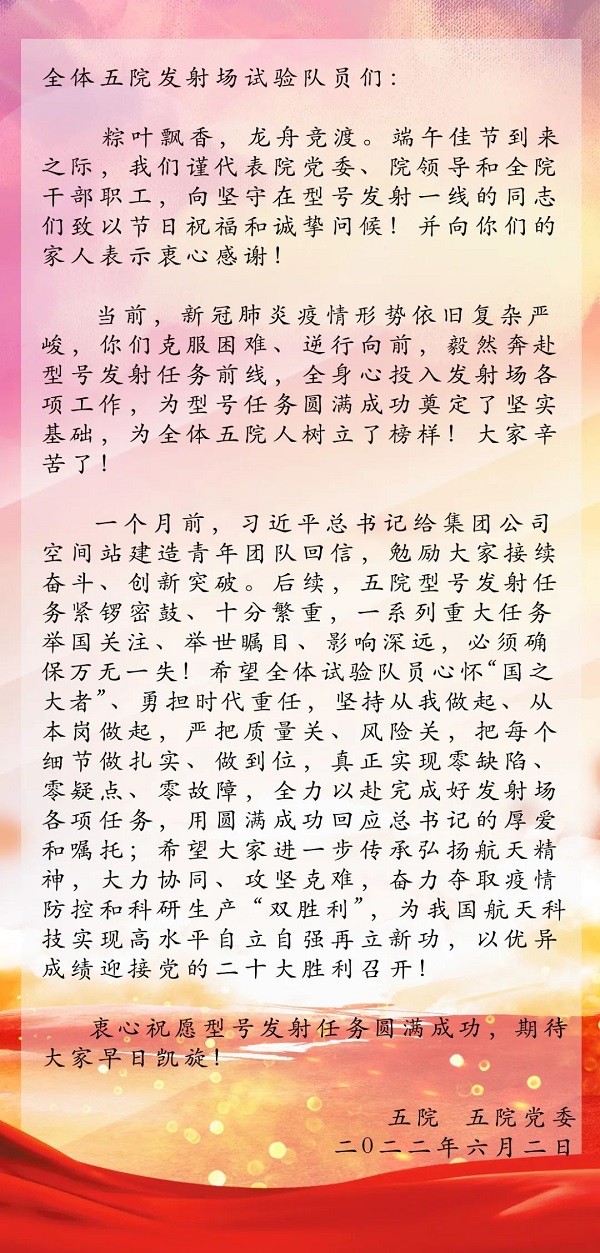 全体五院发射场试验队员们：
粽叶飘香，龙舟竞渡。端午佳节到来
之际，我们谨代表院党委、院领导和全院
干部职工，向坚守在型号发射一线的同志
们致以节日祝福和诚挚问候！并向你们的
家人表示衷心感谢！
当前，新冠肺炎疫情形势依旧复杂严
峻，你们克服困难、逆行向前，毅然奔赴
型号发射任务前线，全身心投入发射场各
项工作，为型号任务圆满成功奠定了坚实
基础，为全体五院人树立了榜样！大家辛
苦了！
一个月前，习近平总书记给集团公司
空间站建造青年团队回信，勉励大家接续
奋斗、创新突破。后续，五院型号发射任
务紧锣密鼓、十分繁重，一系列重大任务
举国关注、举世瞩目、影响深远，必须确
保万无一失！希望全体试验队员心怀“国之
大者”、勇担时代重任，坚持从我做起、从
本岗做起，严把质量关、风险关，把每个
细节做扎实、做到位，真正实现零缺陷、
零疑点、零故障，全力以赴完成好发射场
各项任务，用圆满成功回应总书记的厚爱
和嘱托；希望大家进一步传承弘扬航天精
神，大力协同、攻坚克难，奋力夺取疫情
防控和科研生产“双胜利”，为我国航天科
技实现高水平自立自强再立新功，以优异
成绩迎接党的二十大胜利召开！
衷心祝愿型号发射任务圆满成功，期待
大家早日凯旋！
五院　五院党委
二〇二二年六月二日